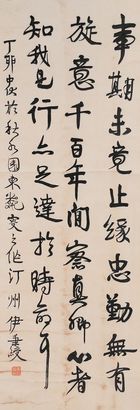 事期未竟止緣忠勤無有
旋意千百年間察真卿心者
知我是行亦足達於時命耳
丁卯中秋於秋水園東
之作汀州伊秉綬